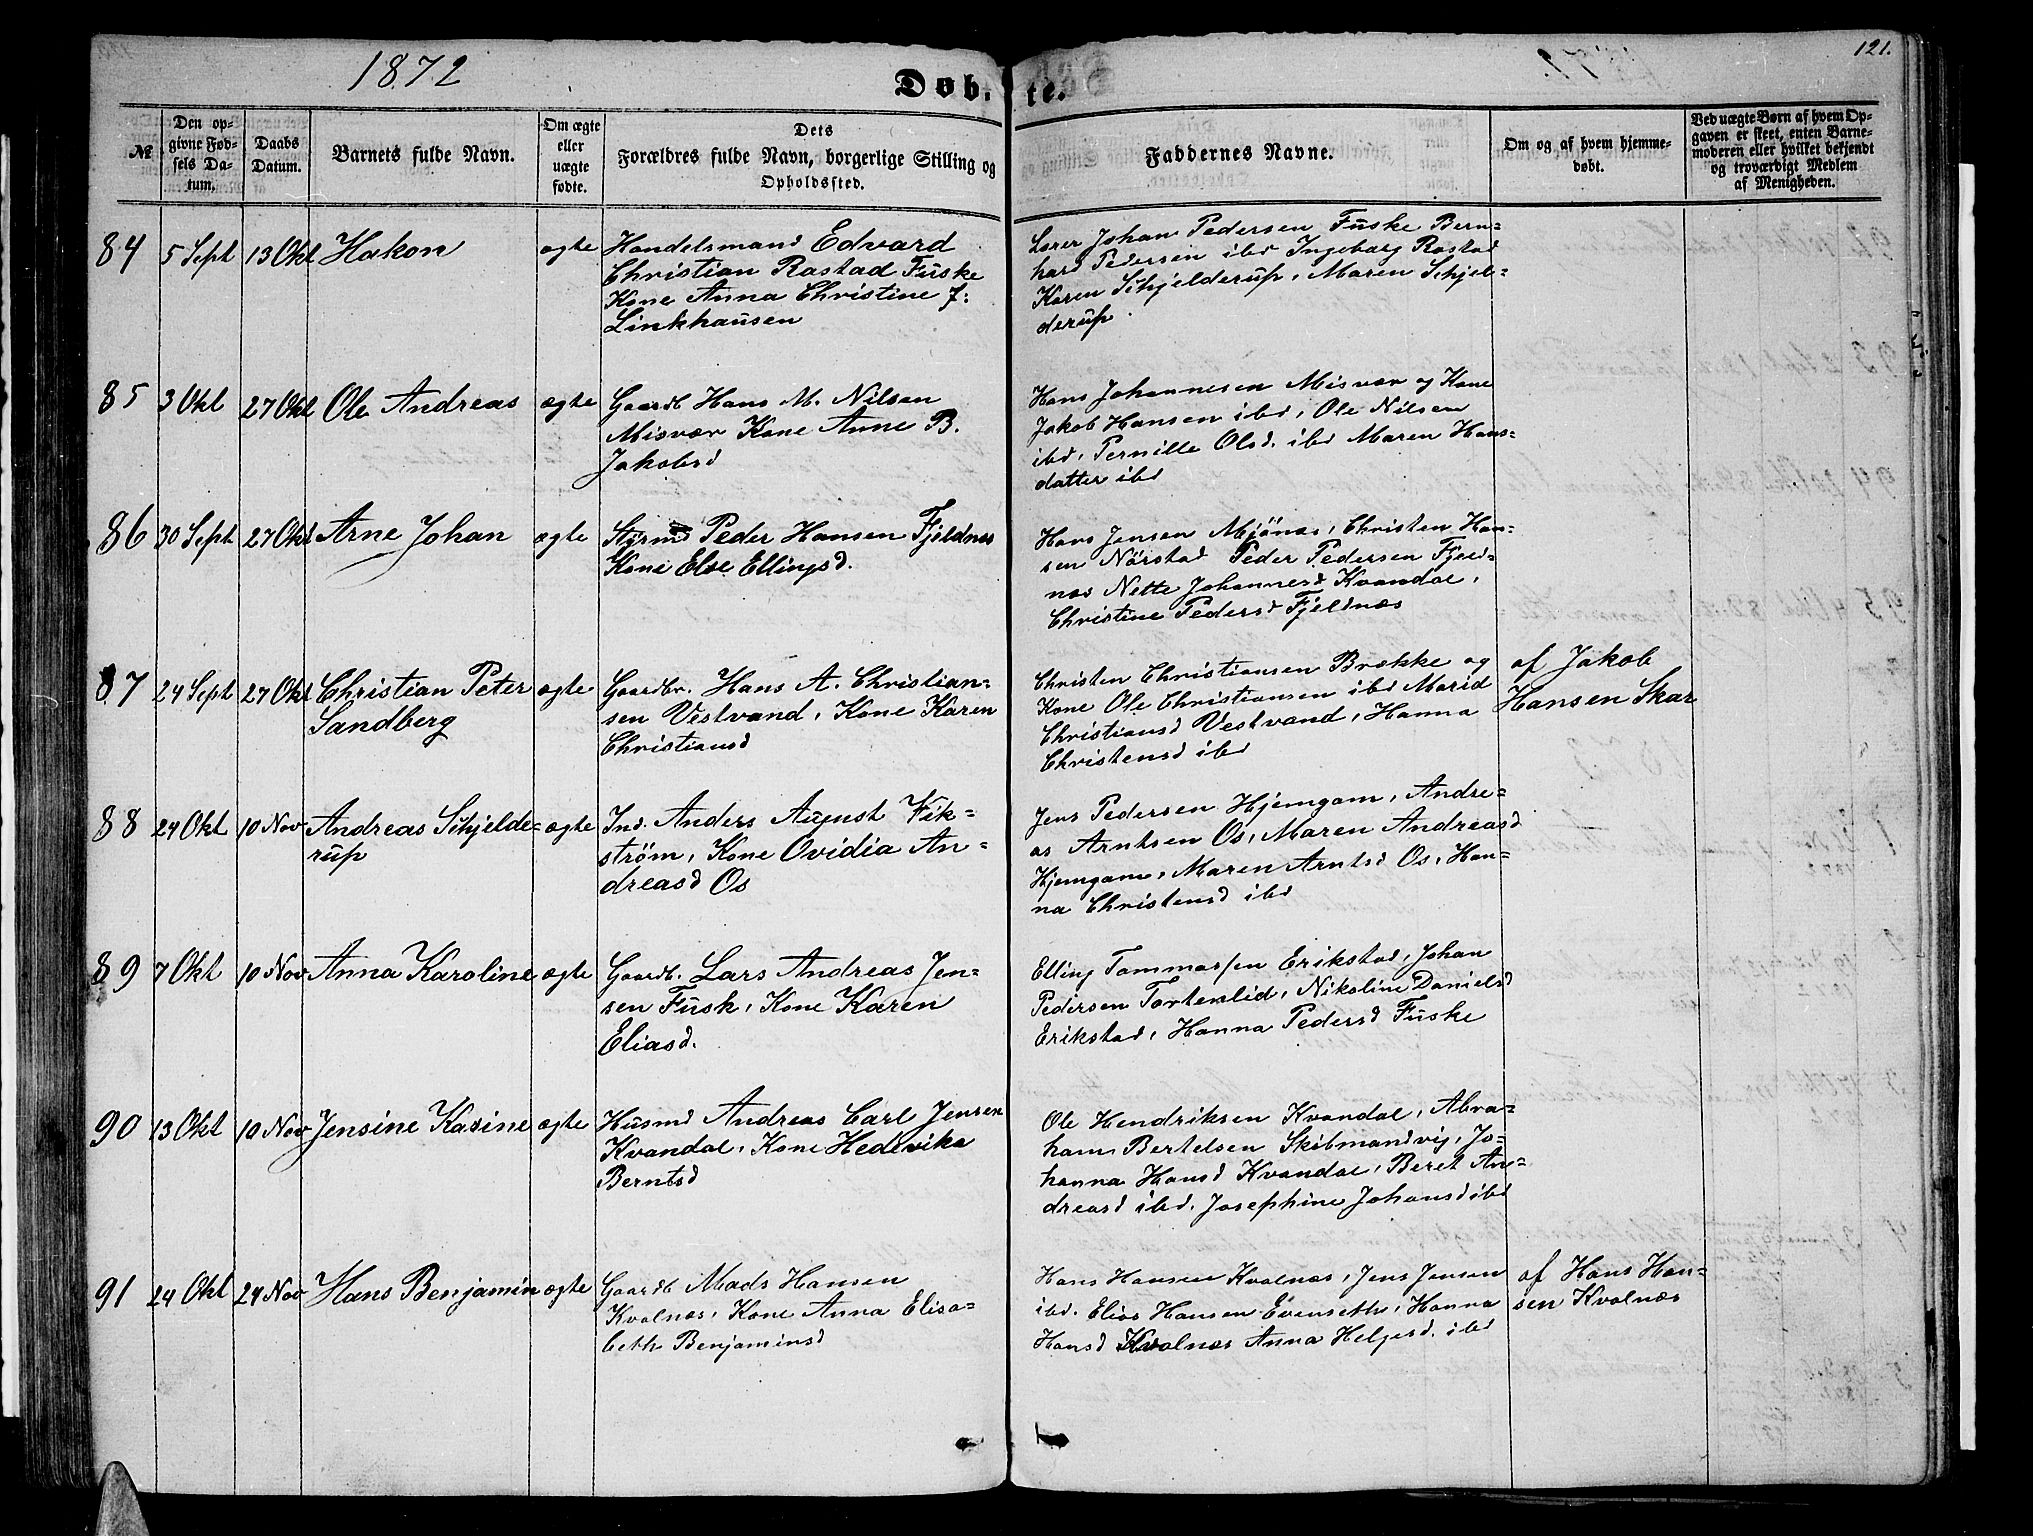 1872
Døbte.
121.
№
Den opgivne Fødsels Datum.
Daabs Datum.
Barnets fulde Navn.
Om ægte eller uægte fødte.
Dets Forældres fulde Navn, borgerlige Stilling og Opholdssted.
Faddernes Navne.
Om og af hvem hjemmedøbt.
Ved uægte Børn af hvem Opgaven er skeet, enten Barnemoderen eller hvilket bekjendt og troværdigt Medlem af Menigheden.
84 5 Sept 13 Okt Hakon ægte
Handelsmand Edvard
Christian Rostad Fuske
Kone Anna Christine f:
Linkhausen
Lærer Johan Pedersen Fuske Bern=
hard Pedersen ibd Ingeborg Rostad
Karen Schjelderup, Maren Schjel=
derup.
85 3 Okt 27 Okt Ole Andreas ægte
Gaardb Hans M. Nilsen
Misvær Kone Anne B.
Jakobsd
Hans Johannesen Misvær og Kone
Jakob Hansen ibd, Ole Nilsen
ibd, Pernille Olsd. ibd Maren Hans=
datter ibd
86 30 Sept 27 Okt Arne Johan ægte
Styrmd Peder Hansen Fjeldnes
Kone Else Ellingsd.
Hans Jensen Mjönes, Christen Han=
sen Nörstad Peder Pedersen Fjeld=
næs Nette Johannesd Kvandal,
Christine Pedersd Fjeldnæs
87 24 Sept 27 Okt Christian Peter ægte
Sandberg
Gaardbr. Hans A. Christian=
sen Vestvand, Kone Karen
Christiansd
Christen Christiansen Brække og
Kone Ole Christiansen ibd Marid
Christiansd Vestvand, Hanna
Christensd ibd
af Jakob
Hansen Skar
88 24 Okt 10 Nov Andreas Schjelde= ægte
rup
Ind. Anders August Vik=
strøm, Kone Ovidia An=
dreasd Os
Jens Pedersen Hjemgam, Andre=
as Arntsen Os, Maren Andreasd
Hjemgam, Maren Arntsd Os, Han=
na Christensd ibd
89 7 Okt 10 Nov Anna Karoline ægte
Gaardb. Lars Andreas Jen=
sen Fusk, Kone Karen
Eliasd.
Elling Tommassen Erikstad, Johan
Pedersen Tortenlid, Nikoline Danielsd
Erikstad, Hanna Pedersd Fuske
90 13 Okt 10 Nov Jensine Kasine ægte
Husmd Andreas Carl Jensen
Kvandal, Kone Hedevika
Berntsd
Ole Hendriksen Kvandal, Abra=
ham Bertelsen Skibmandvig, Jo=
hanna Hansd Kvandal, Beret An=
dreasd ibd. Josephine Johansd ibd
91 24 Okt 24 Nov Hans Benjamin ægte
Gaardb Mads Hansen
Kvalnæs, Kone Anna Elisa=
beth Benjaminsd
Hans Hansen Kvalnæs, Jens Jensen
ibd. Elias Hansen Evenseth, Hanna
Hansd Kvalnæs Anna Helgesd. ibd
af Hans Han=
sen Kvalnæs